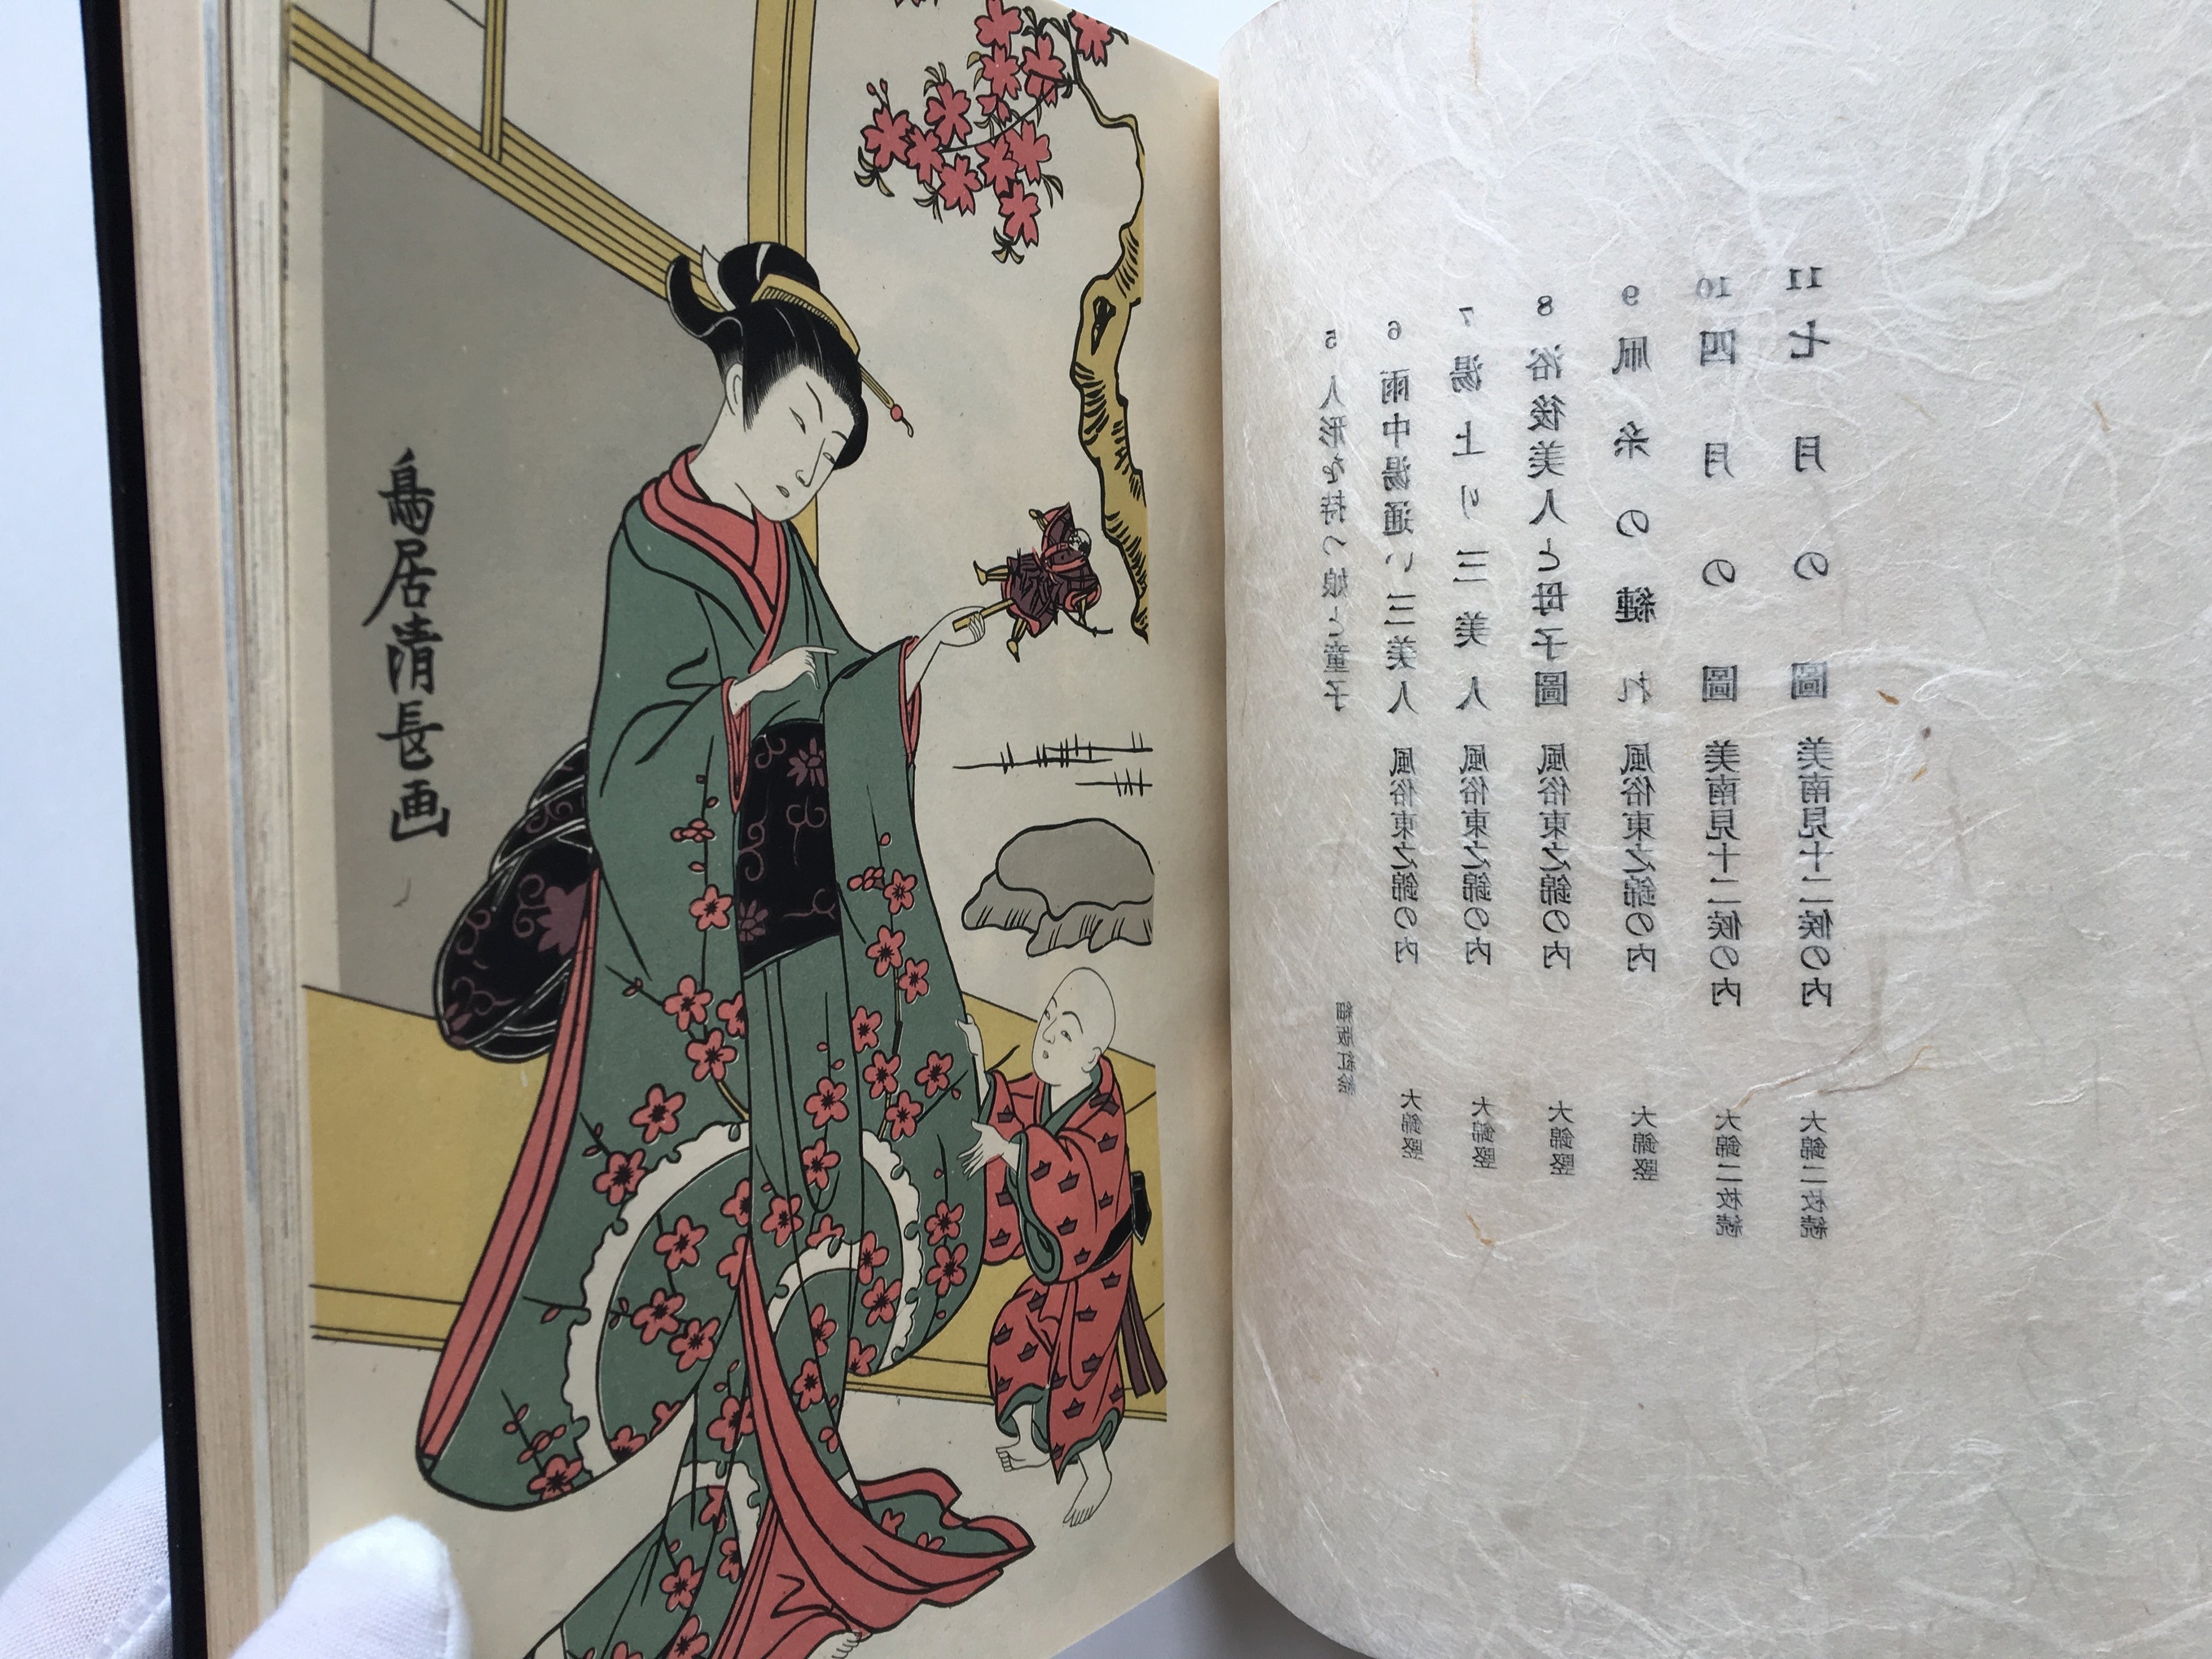 鳥居清長画
5 人形を持つ娘と童子 細版紅絵
6 雨中湯通い三美人 風俗東之錦の内 大錦竪
7 湯上り三美人 風俗東之錦の内 大錦竪
8 浴後美人と母子圖 風俗東之錦の内 大錦竪
9 凧糸の縺れ 風俗東之錦の内 大錦竪
10 四月の圖 美南見十二候の内 大錦二枚続
11 七月の圖 美南見十二候の内 大錦二枚続